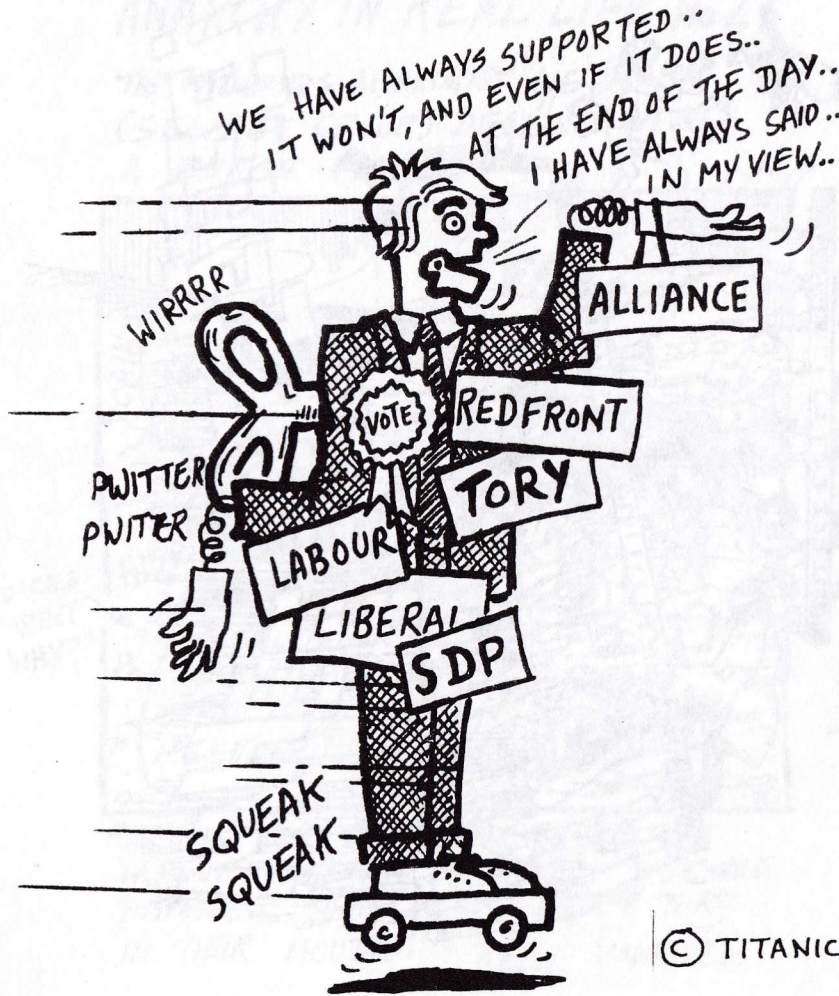 WE HAVE ALWAYS SUPPORTED..
IT WON'T, AND EVEN IF IT DOES..
AT THE END OF THE DAY..
I HAVE ALWAYS SAID..
IN MY VIEW..
WIRRRR
ALLIANCE
VOTE
REDFRONT
TORY
PWITTER
PWITTER
LABOUR
LIBERAL
SDP
SQUEAK
SQUEAK
© TITANIC